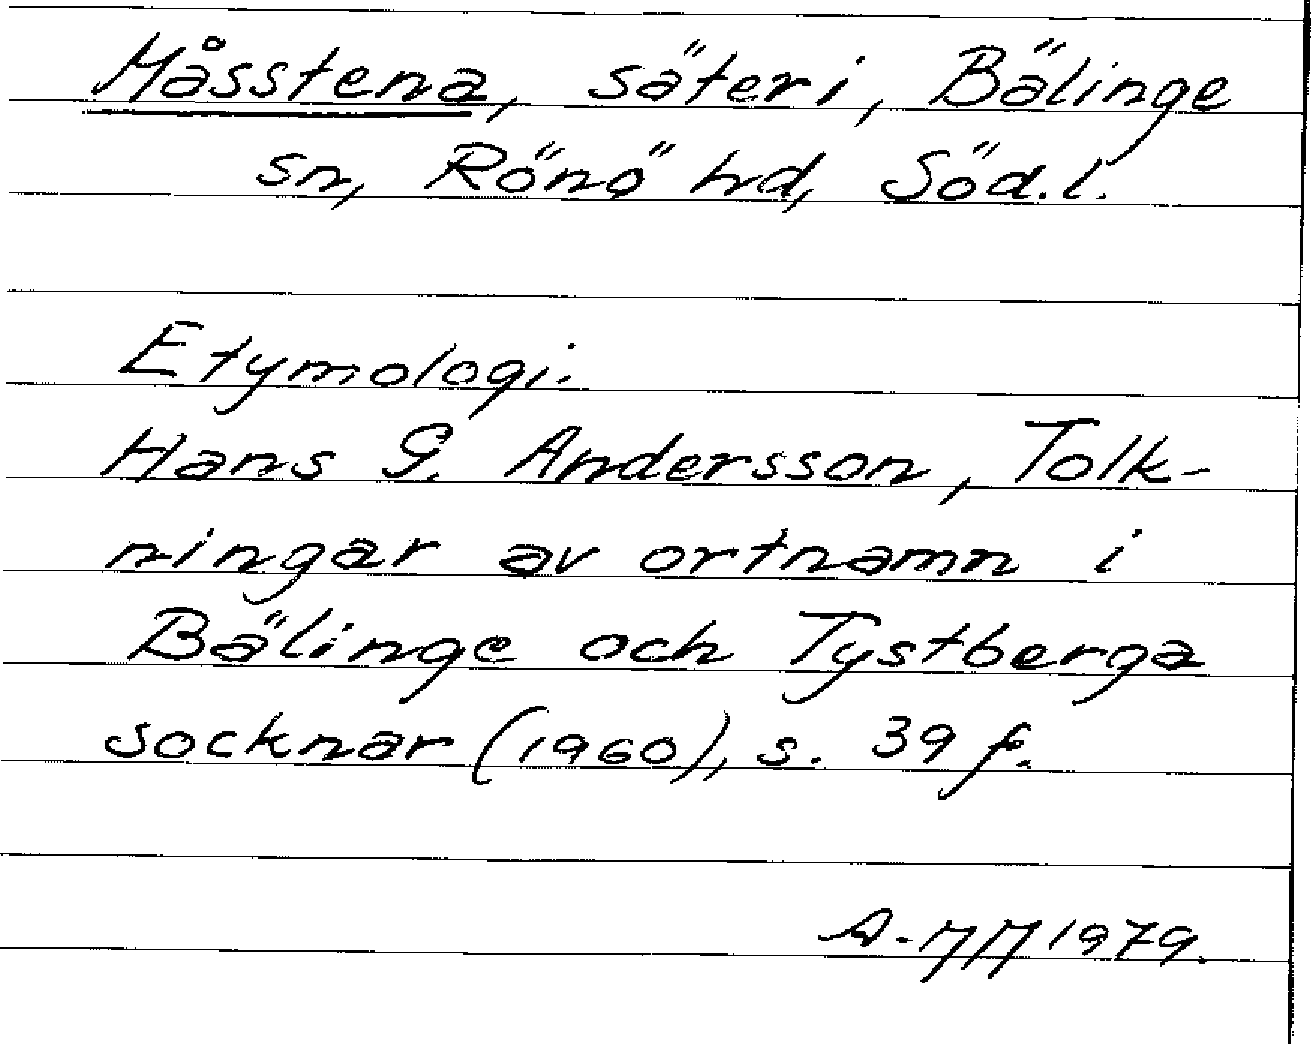 Måsstena, säteri, Bälinge
sn, Rönö hd, Söd.l.
Etymologi:
Hans G. Andersson, Tolk-
ningar av ortnamn i
Bälinge och Tystberga
socknar (1960), s. 39 f.
1979.